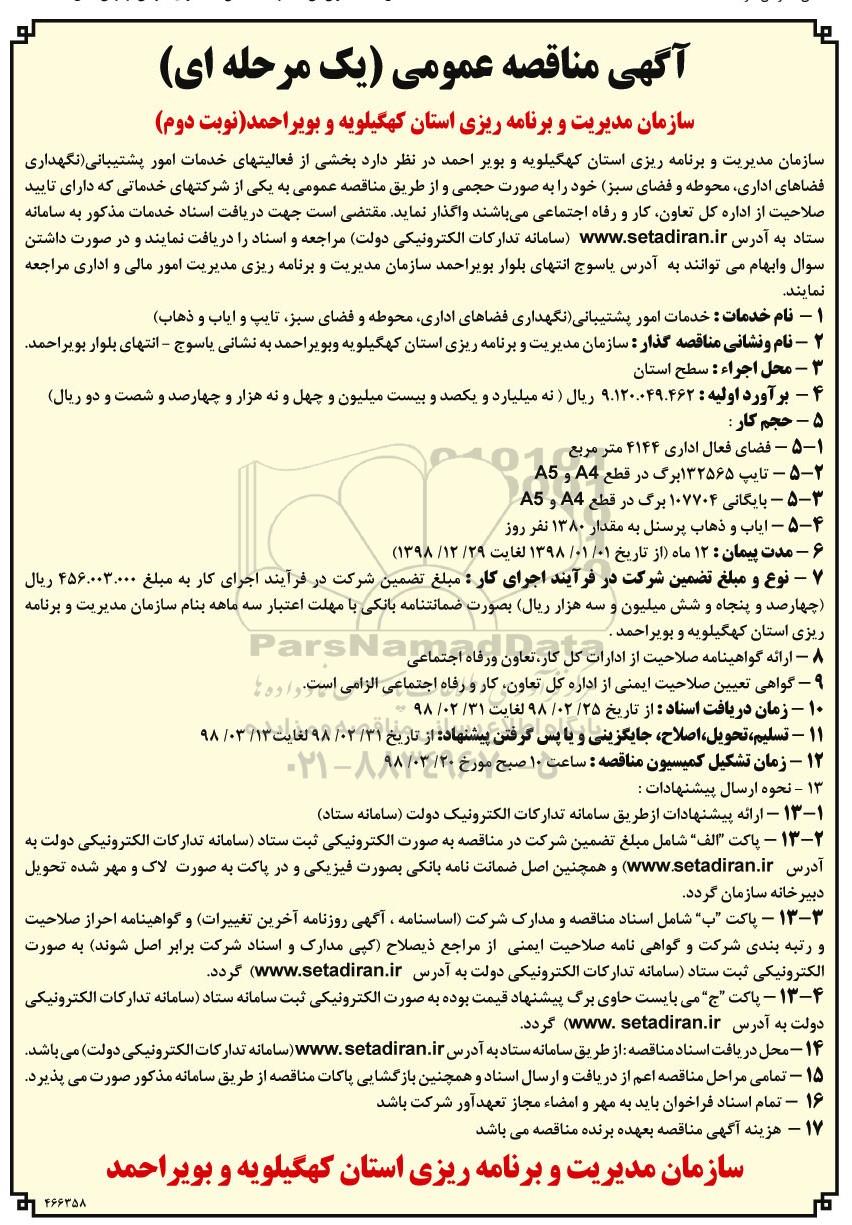 آگهی مناقصه عمومی (یک مرحله ای)
سازمان مدیریت و برنامه ریزی استان کهگیلویه و بویراحمد(نوبت دوم)
سازمان مدیریت و برنامه ریزی استان کهگیلویه و بویر احمد در نظر دارد بخشی از فعالیتهای خدمات امور پشتیبانی(نگهداری
فضاهای اداری، محوطه و فضای سبز) خود را به صورت حجمی و از طریق مناقصه عمومی به یکی از شرکتهای خدماتی که دارای تایید
صلاحیت از اداره کل تعاون، کار و رفاه اجتماعی می‌باشند واگذار نماید. مقتضی است جهت دریافت اسناد خدمات مذکور به سامانه
ستاد به آدرس www.setadiran.ir (سامانه تدارکات الکترونیکی دولت) مراجعه و اسناد را دریافت نمایند و در صورت داشتن
سوال وابهام می توانند به آدرس یاسوج انتهای بلوار بویراحمد سازمان مدیریت و برنامه ریزی مدیریت امور مالی و اداری مراجعه
نمایند.
۱ – نام خدمات : خدمات امور پشتیبانی(نگهداری فضاهای اداری، محوطه و فضای سبز، تایپ و ایاب و ذهاب)
۲ – نام ونشانی مناقصه گذار : سازمان مدیریت و برنامه ریزی استان کهگیلویه وبویراحمد به نشانی یاسوج – انتهای بلوار بویراحمد.
۳ – محل اجراء : سطح استان
۴ – برآورد اولیه : ۹.۱۲۰.۰۴۹.۴۶۲ ریال ( نه میلیارد و یکصد و بیست میلیون و چهل و نه هزار و چهارصد و شصت و دو ریال)
۵ – حجم کار :
۵-۱ – فضای فعال اداری ۴۱۴۴ متر مربع
۵-۲ – تایپ ۱۳۲۵۶۵برگ در قطع A4 و A5
۵-۳ – بایگانی ۱۰۷۷۰۴ برگ در قطع A4 و A5
۵-۴ – ایاب و ذهاب پرسنل به مقدار ۱۳۸۰ نفر روز
۶ – مدت پیمان : ۱۲ ماه (از تاریخ ۰۱/ ۰۱/ ۱۳۹۸ لغایت ۲۹/ ۱۲/ ۱۳۹۸)
۷ – نوع و مبلغ تضمین شرکت در فرآیند اجرای کار : مبلغ تضمین شرکت در فرآیند اجرای کار به مبلغ ۴۵۶.۰۰۳.۰۰۰ ریال
(چهارصد و پنجاه و شش میلیون و سه هزار ریال) بصورت ضمانتنامه بانکی با مهلت اعتبار سه ماهه بنام سازمان مدیریت و برنامه
ریزی استان کهگیلویه و بویراحمد .
ParsNamadData
۸ – ارائه گواهینامه صلاحیت از ادارات کل کار،تعاون ورفاه اجتماعی
۹ – گواهی تعیین صلاحیت ایمنی از اداره کل تعاون، کار و رفاه اجتماعی الزامی است.
۱۰ – زمان دریافت اسناد : از تاریخ ۲۵/ ۰۲/ ۹۸ لغایت ۳۱/ ۰۲/ ۹۸
۱۱ – تسلیم،تحویل،اصلاح، جایگزینی و یا پس گرفتن پیشنهاد: از تاریخ ۳۱/ ۰۲/ ۹۸ لغایت۱۳/ ۰۳/ ۹۸
۱۲ – زمان تشکیل کمیسیون مناقصه : ساعت ۱۰ صبح مورخ ۲۰/ ۰۳/ ۹۸
۱۳ – نحوه ارسال پیشنهادات :
۱۳-۱ – ارائه پیشنهادات ازطریق سامانه تدارکات الکترونیک دولت (سامانه ستاد)
۱۳-۲ – پاکت "الف" شامل مبلغ تضمین شرکت در مناقصه به صورت الکترونیکی ثبت ستاد (سامانه تدارکات الکترونیکی دولت به
آدرس www.setadiran.ir) و همچنین اصل ضمانت نامه بانکی بصورت فیزیکی و در پاکت به صورت لاک و مهر شده تحویل
دبیرخانه سازمان گردد.
۱۳-۳ – پاکت "ب" شامل اسناد مناقصه و مدارک شرکت (اساسنامه ، آگهی روزنامه آخرین تغییرات) و گواهینامه احراز صلاحیت
و رتبه بندی شرکت و گواهی نامه صلاحیت ایمنی از مراجع ذیصلاح (کپی مدارک و اسناد شرکت برابر اصل شوند) به صورت
الکترونیکی ثبت ستاد (سامانه تدارکات الکترونیکی دولت به آدرس www.setadiran.ir) گردد.
۱۳-۴ – پاکت "ج" می بایست حاوی برگ پیشنهاد قیمت بوده به صورت الکترونیکی ثبت سامانه ستاد (سامانه تدارکات الکترونیکی
دولت به آدرس www. setadiran.ir) گردد.
۱۴ – محل دریافت اسناد مناقصه : از طریق سامانه ستاد به آدرس www. setadiran.ir (سامانه تدارکات الکترونیکی دولت) می باشد.
۱۵ – تمامی مراحل مناقصه اعم از دریافت و ارسال اسناد و همچنین بازگشایی پاکات مناقصه از طریق سامانه مذکور صورت می پذیرد.
۱۶ – تمام اسناد فراخوان باید به مهر و امضاء مجاز تعهدآور شرکت باشد
۱۷ – هزینه آگهی مناقصه بعهده برنده مناقصه می باشد
سازمان مدیریت و برنامه ریزی استان کهگیلویه و بویراحمد
۴۶۶۳۵۸